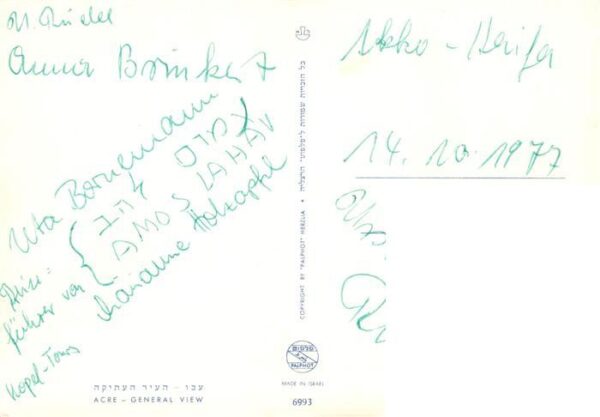 Anna Brinkert
Uta Bornemann
עמוס
להב
AMOS LAHAV
Marianne Holzapfel
Reise-
führer von
Kopel-Tours
עכו - העיר העתיקה
ACRE – GENERAL VIEW
כל הזכויות שמורות ל"פלפוט" הרצליה • COPYRIGHT BY "PALPHOT" HERZLIA
פלפוט
PALPHOT
MADE IN ISRAEL
6993
Akko - Haifa
14.10.1977